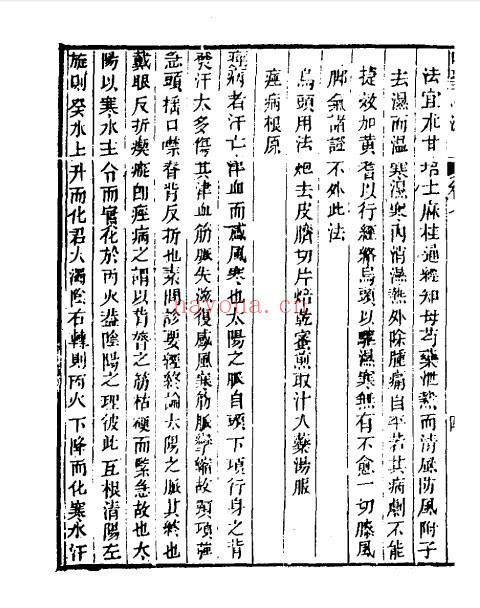 法宜朮甘培土麻桂通經知母芍藥泄熱而清風防風附子
去濕而溫寒濕寒內消濕熱外除腫痛自平若其病劇不能
捷效加黃耆以行經絡烏頭以驅濕寒無有不愈一切膝風
腳氣諸證不外此法
烏頭用法 炮去皮臍切片焙乾蜜煎取汁入藥湯服
痙病根原
痙病者汗亡津血而感風寒也太陽之脈自頭下項行身之背
發汗太多傷其津血筋脈失滋復感風寒筋脈攣縮故頸項強
急頭搖口噤脊背反折也素問診要經終論太陽之脈其終也
戴眼反折瘈瘲即痙病之謂以背膂之筋枯硬而緊急故也太
陽以寒水主令而實化於丙火蓋陰陽之理彼此互根清陽左
旋則癸水上升而化君火濁陰右轉則丙火下降而化寒水汗
nayona.cn